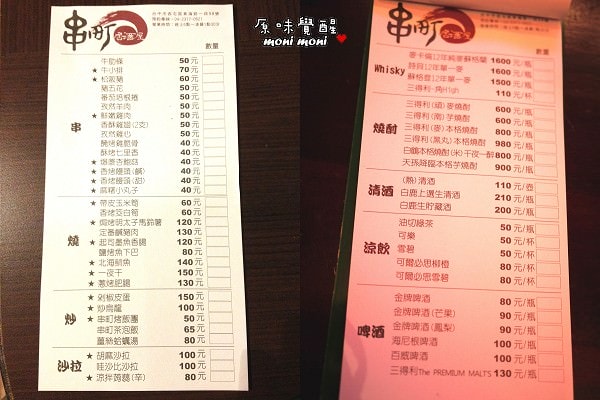 原味覺醒
moni moni
串町
數量
串
牛肋條 50元
★ 牛小排 70元
★ 松阪豬 60元
豬五花 50元
番茄培根捲 50元
孜然羊肉 50元
★ 鮮嫩雞肉 50元
香酥雞翅(2支) 50元
孜然雞心 50元
醃烤雞脆骨 40元
酥烤七里香 40元
★ 爆漿杏鮑菇 40元
★ 香烤饅頭(鹹) 40元
★ 香烤饅頭(甜) 40元
★ 麻糬小丸子 40元
燒
★ 帶皮玉米筍 60元
香烤茭白筍 60元
★ 焗烤明太子馬鈴薯 120元
定番鹹豬肉 130元
★ 起司墨魚香腸 120元
鹽烤魚下巴 80元
★ 北海鯖魚 140元
★ 一夜干 150元
★ 蔥烤肥腸 130元
炒
★ 剁椒皮蛋 150元
★ 炒烏龍 100元
★ 串町烤飯糰 50元
串町茶泡飯 65元
薑絲蛤蠣湯 80元
沙拉
★ 胡麻沙拉 100元
哇沙比沙拉 100元
★ 涼拌蒟蒻(辛) 80元
串町
數量
Whisky
麥卡倫12年純麥蘇格蘭 1600元/瓶
詩貝12年單一麥 1600元/瓶
蘇格登12年單一麥 1500元/瓶
三得利-角High 110元/杯
燒酎
三得利(緞)麥燒酎 600元/瓶
三得利(南)芋燒酎 600元/瓶
三得利(麥)本格燒酎 800元/瓶
三得利(黑丸)本格燒酎 980元/瓶
白鶴本格燒酎(米)午夜一酔 800元/瓶
天孫降臨本格芋燒酎 900元/瓶
清酒
(熱)清酒 110元/壺
白鹿上選生清酒 210元/瓶
白鹿生貯藏酒 200元/瓶
涼飲
油切綠茶 50元/瓶
可樂 50元/杯
雪碧 50元/杯
可爾必思柳橙 80元/杯
可爾必思雪碧 80元/杯
啤酒
金牌啤酒 80元/瓶
金牌啤酒(芒果) 90元/瓶
金牌啤酒(鳳梨) 90元/瓶
海尼根啤酒 100元/瓶
百威啤酒 100元/瓶
三得利The PREMIUM MALTS 130元/瓶